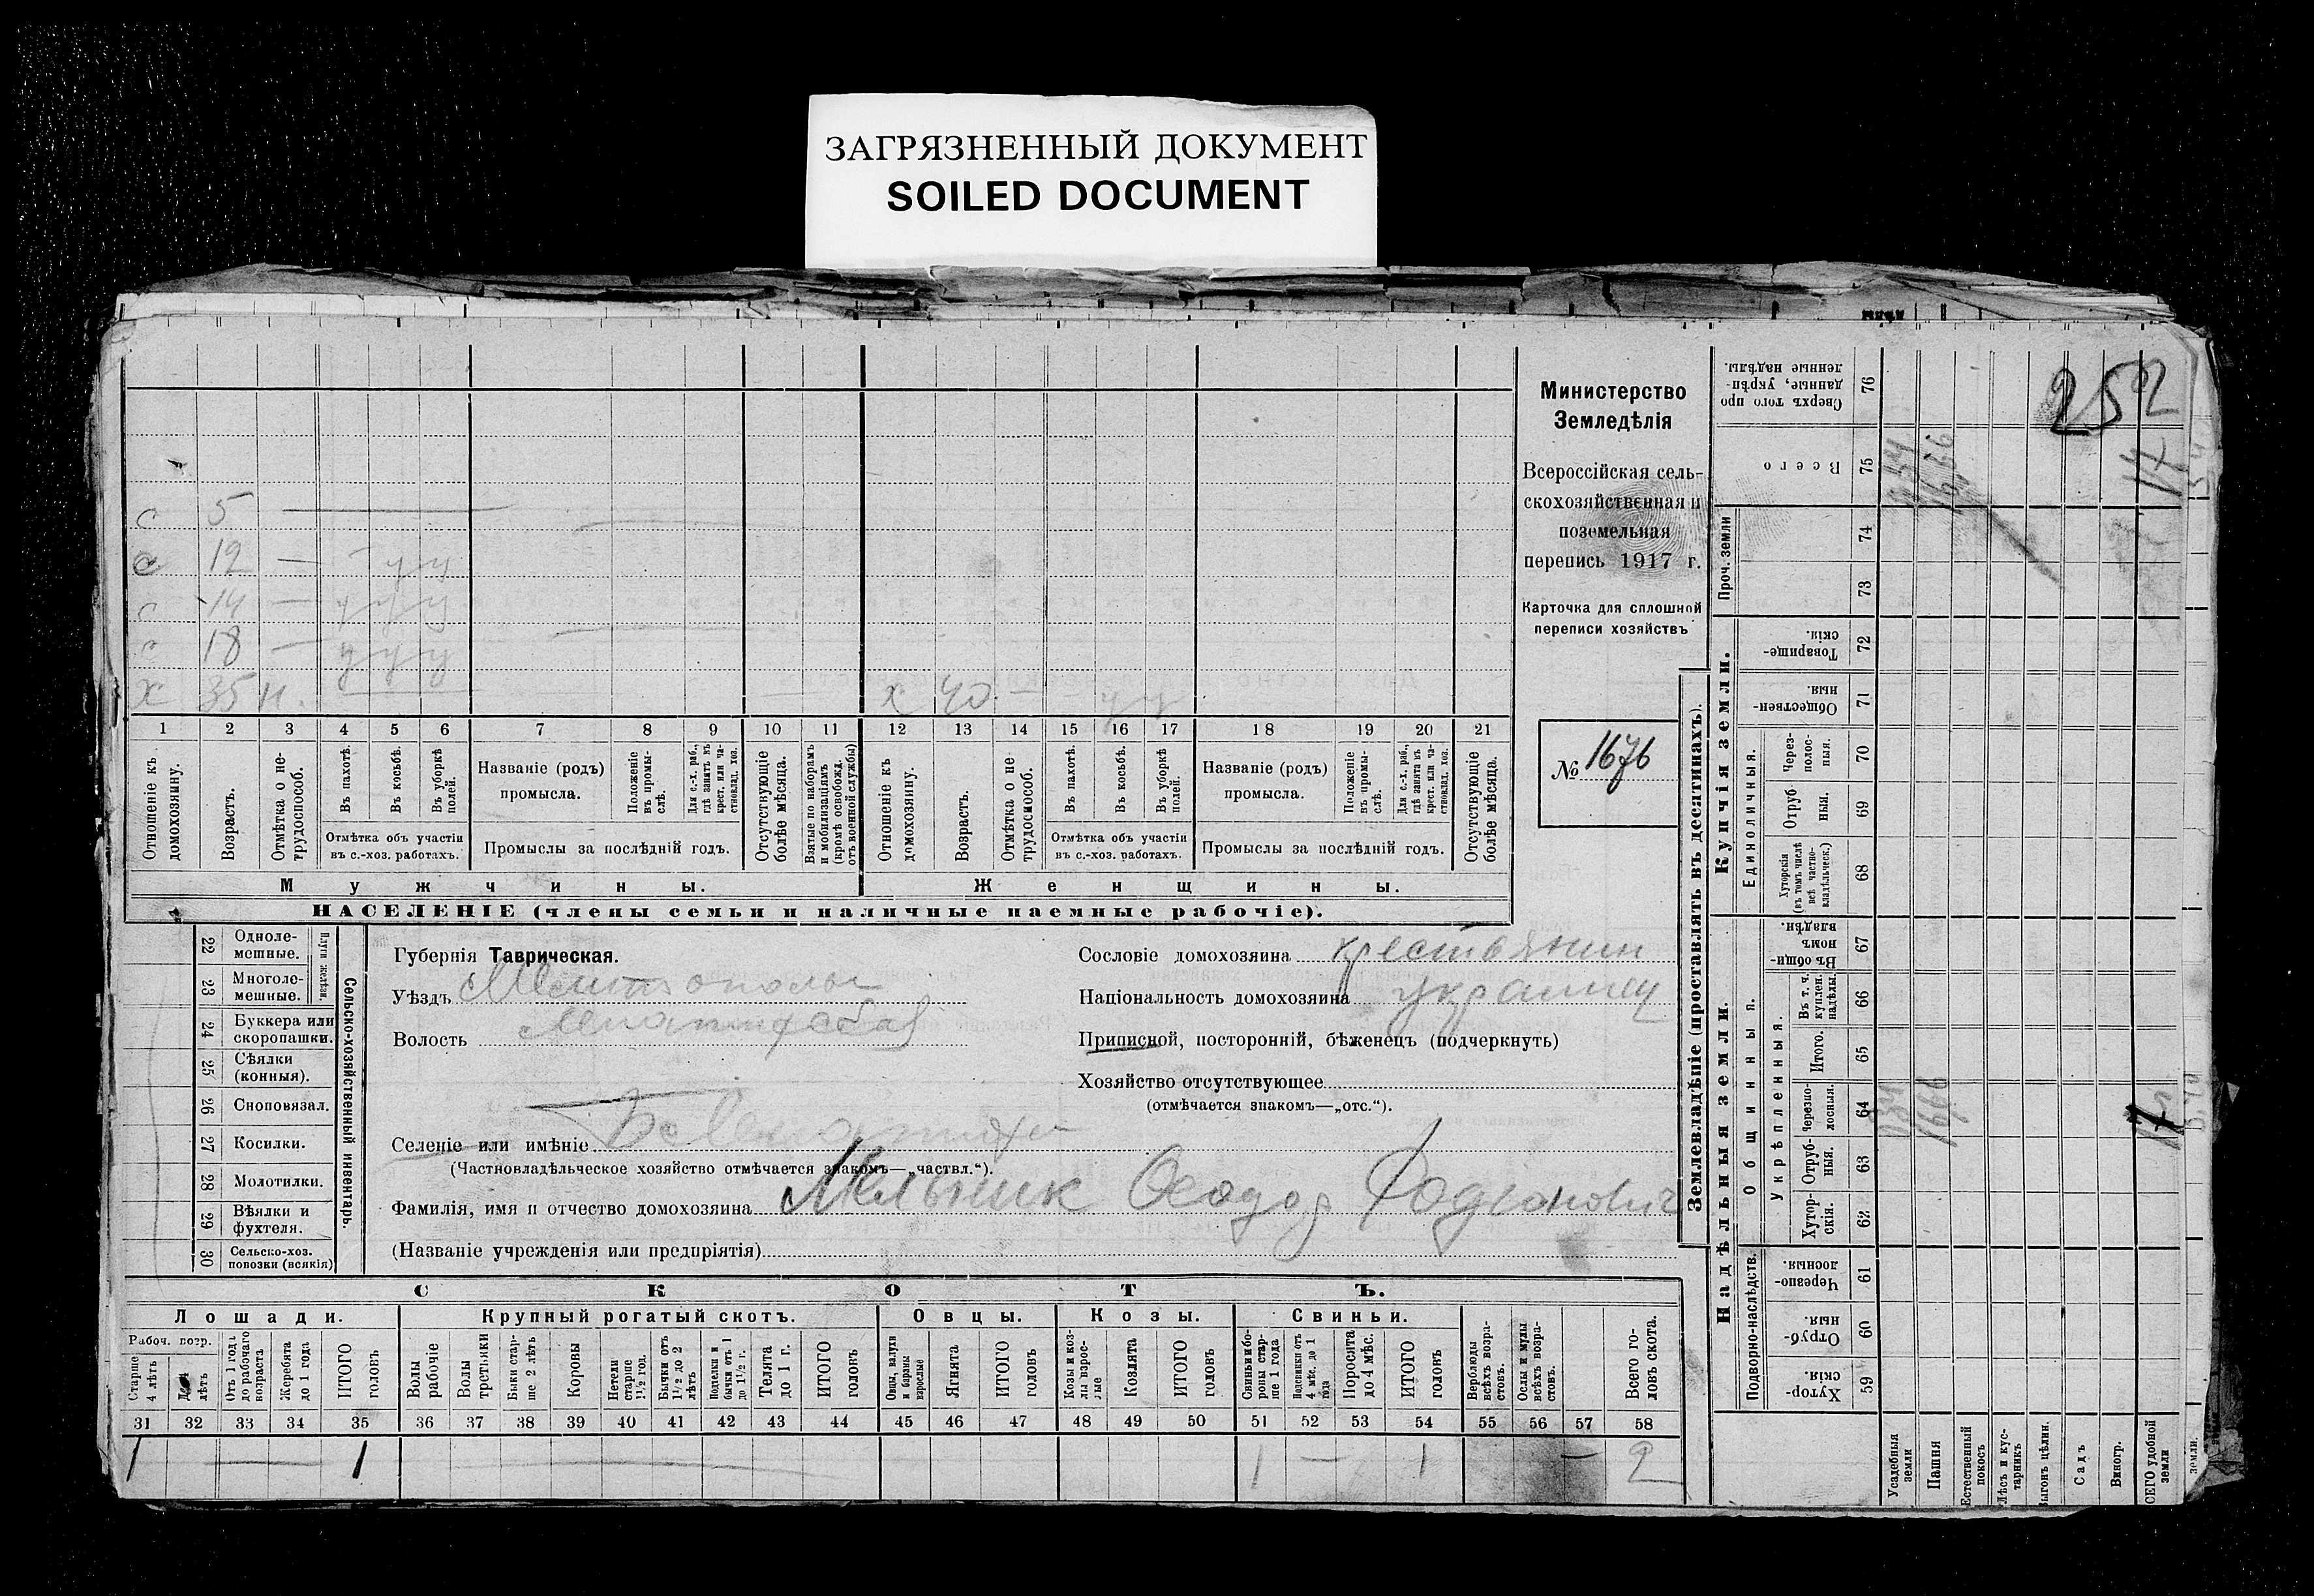 ЗАГРЯЗНЕННЫЙ ДОКУМЕНТ
SOILED DOCUMENT
252
Министерство
Земледѣлія
Всероссійская сель-
скохозяйственная и
поземельная
перепись 1917 г.
Карточка для сплошной
переписи хозяйствъ
№ 1676
с 5
с 12 — у у
с 14 — у у у
с 18 — у у у
х 35 н. х 40 — — у у
1 2 3 4 5 6 7 8 9 10 11 12 13 14 15 16 17 18 19 20 21
Отношеніе къ домохозяину.
Возрастъ.
Отмѣтка о не-трудоспособ.
Въ пахотѣ.
Въ косьбѣ.
Въ уборкѣ полей.
Отмѣтка объ участіи
въ с.-хоз. работахъ.
Названіе (родъ)
промысла.
Положеніе въ промы-слѣ.
Для с.-х. раб., гдѣ занятъ въ крест. или ча-стновлад. хоз.
Промыслы за послѣдній годъ.
Отсутствующіе болѣе мѣсяца.
Взятые по наборамъ и мобилизаціямъ (кромѣ освобожд. отъ военной службы)
Отношеніе къ домохозяину.
Возрастъ.
Отмѣтка о не трудоспособ.
Въ пахотѣ.
Въ косьбѣ.
Въ уборкѣ полей.
Отмѣтка объ участіи
въ с.-хоз. работахъ.
Названіе (родъ)
промысла.
Положеніе въ промы-слѣ.
Для с.-х. раб., гдѣ занята въ крест. или ча-стновлад. хоз.
Промыслы за послѣдній годъ.
Отсутствующіе болѣе мѣсяца.
Мужчины.
Женщины.
НАСЕЛЕНІЕ (члены семьи и наличные наемные рабочіе).
22 Одноле-мешные.
23 Многоле-мешные.
Плуги желѣзн.
24 Буккера или скоропашки.
25 Сѣялки (конныя).
26 Сноповязал.
27 Косилки.
28 Молотилки.
29 Вѣялки и фухтеля.
30 Сельско-хоз. повозки (всякія)
Сельско-хозяйственный инвентарь.
Губернія Таврическая.
Уѣздъ
Волость
Селеніе или имѣніе
(Частновладѣльческое хозяйство отмѣчается знакомъ—„частвл.“).
Фамилія, имя и отчество домохозяина Мельник Феодор Родіонович
(Названіе учрежденія или предпріятія)
Сословіе домохозяина крестьянин
Національность домохозяина украинец
Приписной, посторонній, бѣженецъ (подчеркнуть)
Хозяйство отсутствующее
(отмѣчается знакомъ—„отс.“).
СКОТЪ.
Лошади. Крупный рогатый скотъ. Овцы. Козы. Свиньи.
Рабоч. возр.
Старше 4 лѣтъ
лѣтъ
Отъ 1 года до рабочаго возраста
Жеребята до 1 года
ИТОГО головъ
Волы рабочіе
Волы третьяки
Быки стар-ше 2 лѣтъ
Коровы
Нетели старше 1½ год.
Бычки отъ 1½ до 2 лѣтъ
Подтелки и бычки отъ 1 до 1½ г.
Телята до 1 г.
ИТОГО головъ
Овцы, валухи и бараны взрослые
Ягнята
ИТОГО головъ
Козы и коз-лы взрос-лые
Козлята
ИТОГО головъ
Свиньи и бо-ровы стар-ше 1 года
Подсвинки отъ 4 мѣс. до 1 года
Поросята до 4 мѣс.
ИТОГО головъ
Верблюды всѣхъ возра-стовъ.
Ослы и мулы всѣхъ возра-стовъ.
Всего го-ловъ скота.
31 32 33 34 35 36 37 38 39 40 41 42 43 44 45 46 47 48 49 50 51 52 53 54 55 56 57 58
1 — 1 — 1 — 1 — 2
Землевладѣніе (проставлять въ десятинахъ).
Купчія земли.
Надѣльныя земли.
Сверхъ того про данные, укрѣп-ленные надѣлы. 76
Всего 75
Проч. земли 74
73
Товарище-скія. 72
Обществен-ныя. 71
Единоличныя.
Через-полос-ныя. 70
Отруб ныя. 69
Хуторскія (въ томъ числѣ всѣ частно-владѣльческ.) 68
Общинныя.
Въ общи-номъ владѣн. 67
Укрѣпленныя.
Въ т. ч. куплен. надѣлы. 66
Итого. 65
Черезпо-лосныя. 64
Отруб-ныя. 63
Хутор-скія. 62
Подворно-наслѣдств.
Черезпо-лосныя. 61
Отруб-ныя. 60
Хутор-скія. 59
Усадебныя земли
Пашня
Естественный покосъ
Лѣсъ и кус-тарникъ
Выгонъ цѣлин.
Садъ
Виногр.
ВСЕГО удобной земли
земли.